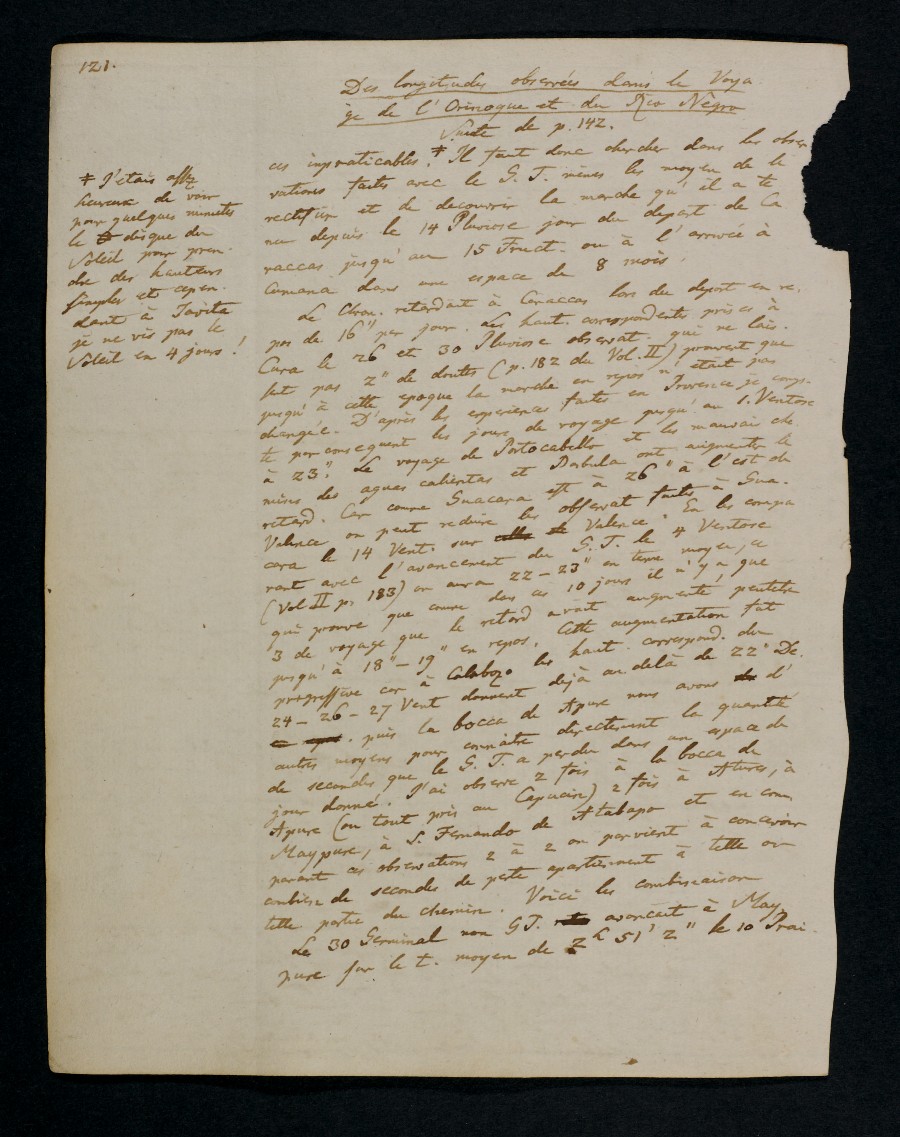 121.
Des longitudes observées dans le Voya
ge de l'Orinoque et du Rio Negro
Suite de p. 142.
ces impraticables. ‡ Il faut donc chercher dans les obser
vations faites avec le G. T. mêmes les moyen de le
rectifier et de decouvrir la marche qu'il a te
nu depuis le 14 Pluviose jour du depart de Ca
raccas jusqu'au 15 Fruct. ou à l'arrivée à
Cumana dans une espace de 8 mois.
Le Chron. retardait à Caraccas lors du depart en re.
pos de 16" par jour. Les haut. correspondents prises à
Cura le 26 et 30 Pluviose observat. qui ne lais.
sent pas 2" de doutes (p. 182 du Vol. II) prouvent que
jusqu'à cette epoque la marche en repos n'était pas
changée. D'après les experiences faites en Provence je comp-
te par consequent les jours de voyage jusqu'au 1. Ventose
à 23". Le voyage de Portocabello et les mauvais che
mins des aguas calientas et Barbula ont augmenter le
retard. Car comme Guacara est à 26" à l'est de
Valence on peut reduire les observat faites à Gua.
cara le 14 Vent. sur Valence. En les compa
rant avec l'avancement du G. T. le 4 Ventose
(Vol II p. 183) on aura 22 – 23" en terme moyen, ce
qui prouve que comme dans ces 10 jours il n'y a que
3 de voyage que le retard avait augmenté peutetre
jusqu'à 18" – 19" en repos. Cette augmentation fut
progressive car à Calabozo les haut. correspond. du
24 – 26 – 27 Vent donnent dejà au delà de 22" De.
puis la bocca de Apure nous avons d'
autres moyens pour connaitre directement la quantité
de secondes que le G. T. a perdu dans un espace de
jour donné. J'ai observé 2 fois à la bocca de
Apure (ou tout près au Capucin) 2 fois à Atures, à
Maypure, à S. Fernando de Atabapo et en com
parant ces observations 2 à 2 on parvient à concevoir
combien de secondes de perte apartiennent à telle ou
telle partie du chemin. Voici les combinaison
Le 30 Germinal mon GT. avancait à May
pure sur le t. moyen de 2h 51' 2" le 10 Prai-
‡ J'etais assez
heureux de voir
pour quelques minutes
le disque du
Soleil pour pren.
dre des hauteurs
simples et cepen.
dant à Javita
je ne vis pas le
Soleil en 4 jours!